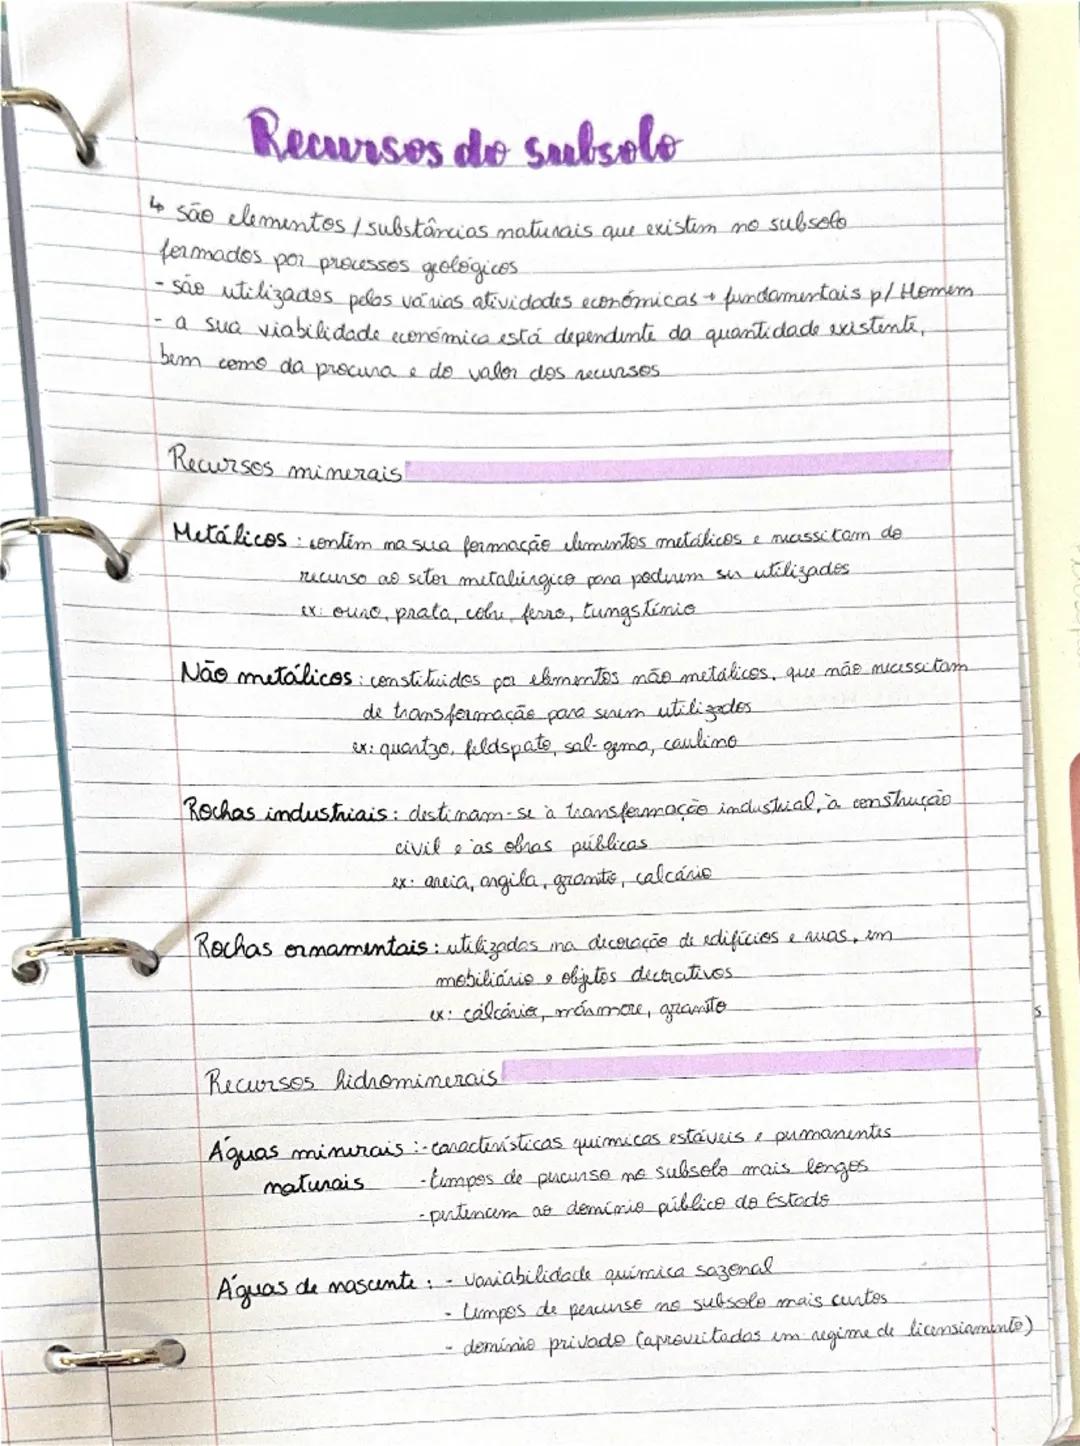 Recursos do subsolo
↳ são elementos / substâncias naturais que existem no subsolo
formados por processos geológicos
- são utilizados pelas várias atividades económicas → fundamentais p/ Homem
- a sua viabilidade económica está dependente da quantidade existente,
bem como da procura e do valor dos recursos
Recursos minerais
Metálicos : contêm na sua formação elementos metálicos e necessitam do
recurso ao setor metalúrgico para poderem ser utilizados
ex: ouro, prata, cobre, ferro, tungsténio
Não metálicos : constituídos por elementos não metálicos, que não necessitam
de transformação para serem utilizados
ex: quartzo, feldspato, sal-gema, caulino
Rochas industriais : destinam-se à transformação industrial, à construção
civil e às obras públicas
ex: areia, argila, granito, calcário
Rochas ornamentais : utilizadas na decoração de edifícios e ruas, em
mobiliário e objetos decorativos
ex: calcário, mármore, granito
Recursos hidrominerais
Águas minerais : - características químicas estáveis e permanentes
naturais - tempos de percurso no subsolo mais longos
- pertencem ao domínio público do Estado
Águas de nascente : - variabilidade química sazonal
- tempos de percurso no subsolo mais curtos
- domínio privado (aproveitadas em regime de licensiamento)